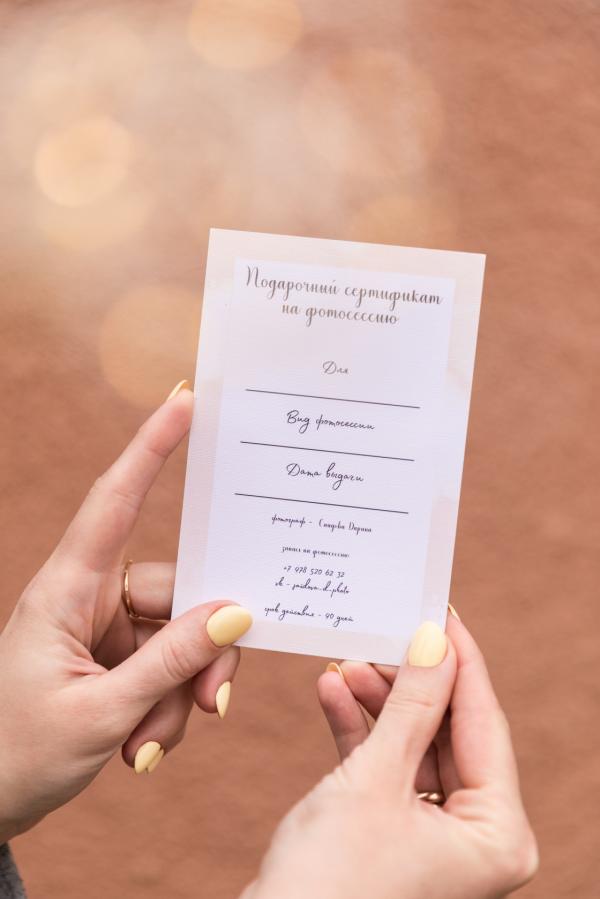 Подарочный сертификат
на фотосессию
Для
Вид фотосессии
Дата выдачи
фотограф - Саидова Дарина
запись на фотосессию
+7 978 520 62 32
vk - saidova_d_photo
срок действия - 90 дней